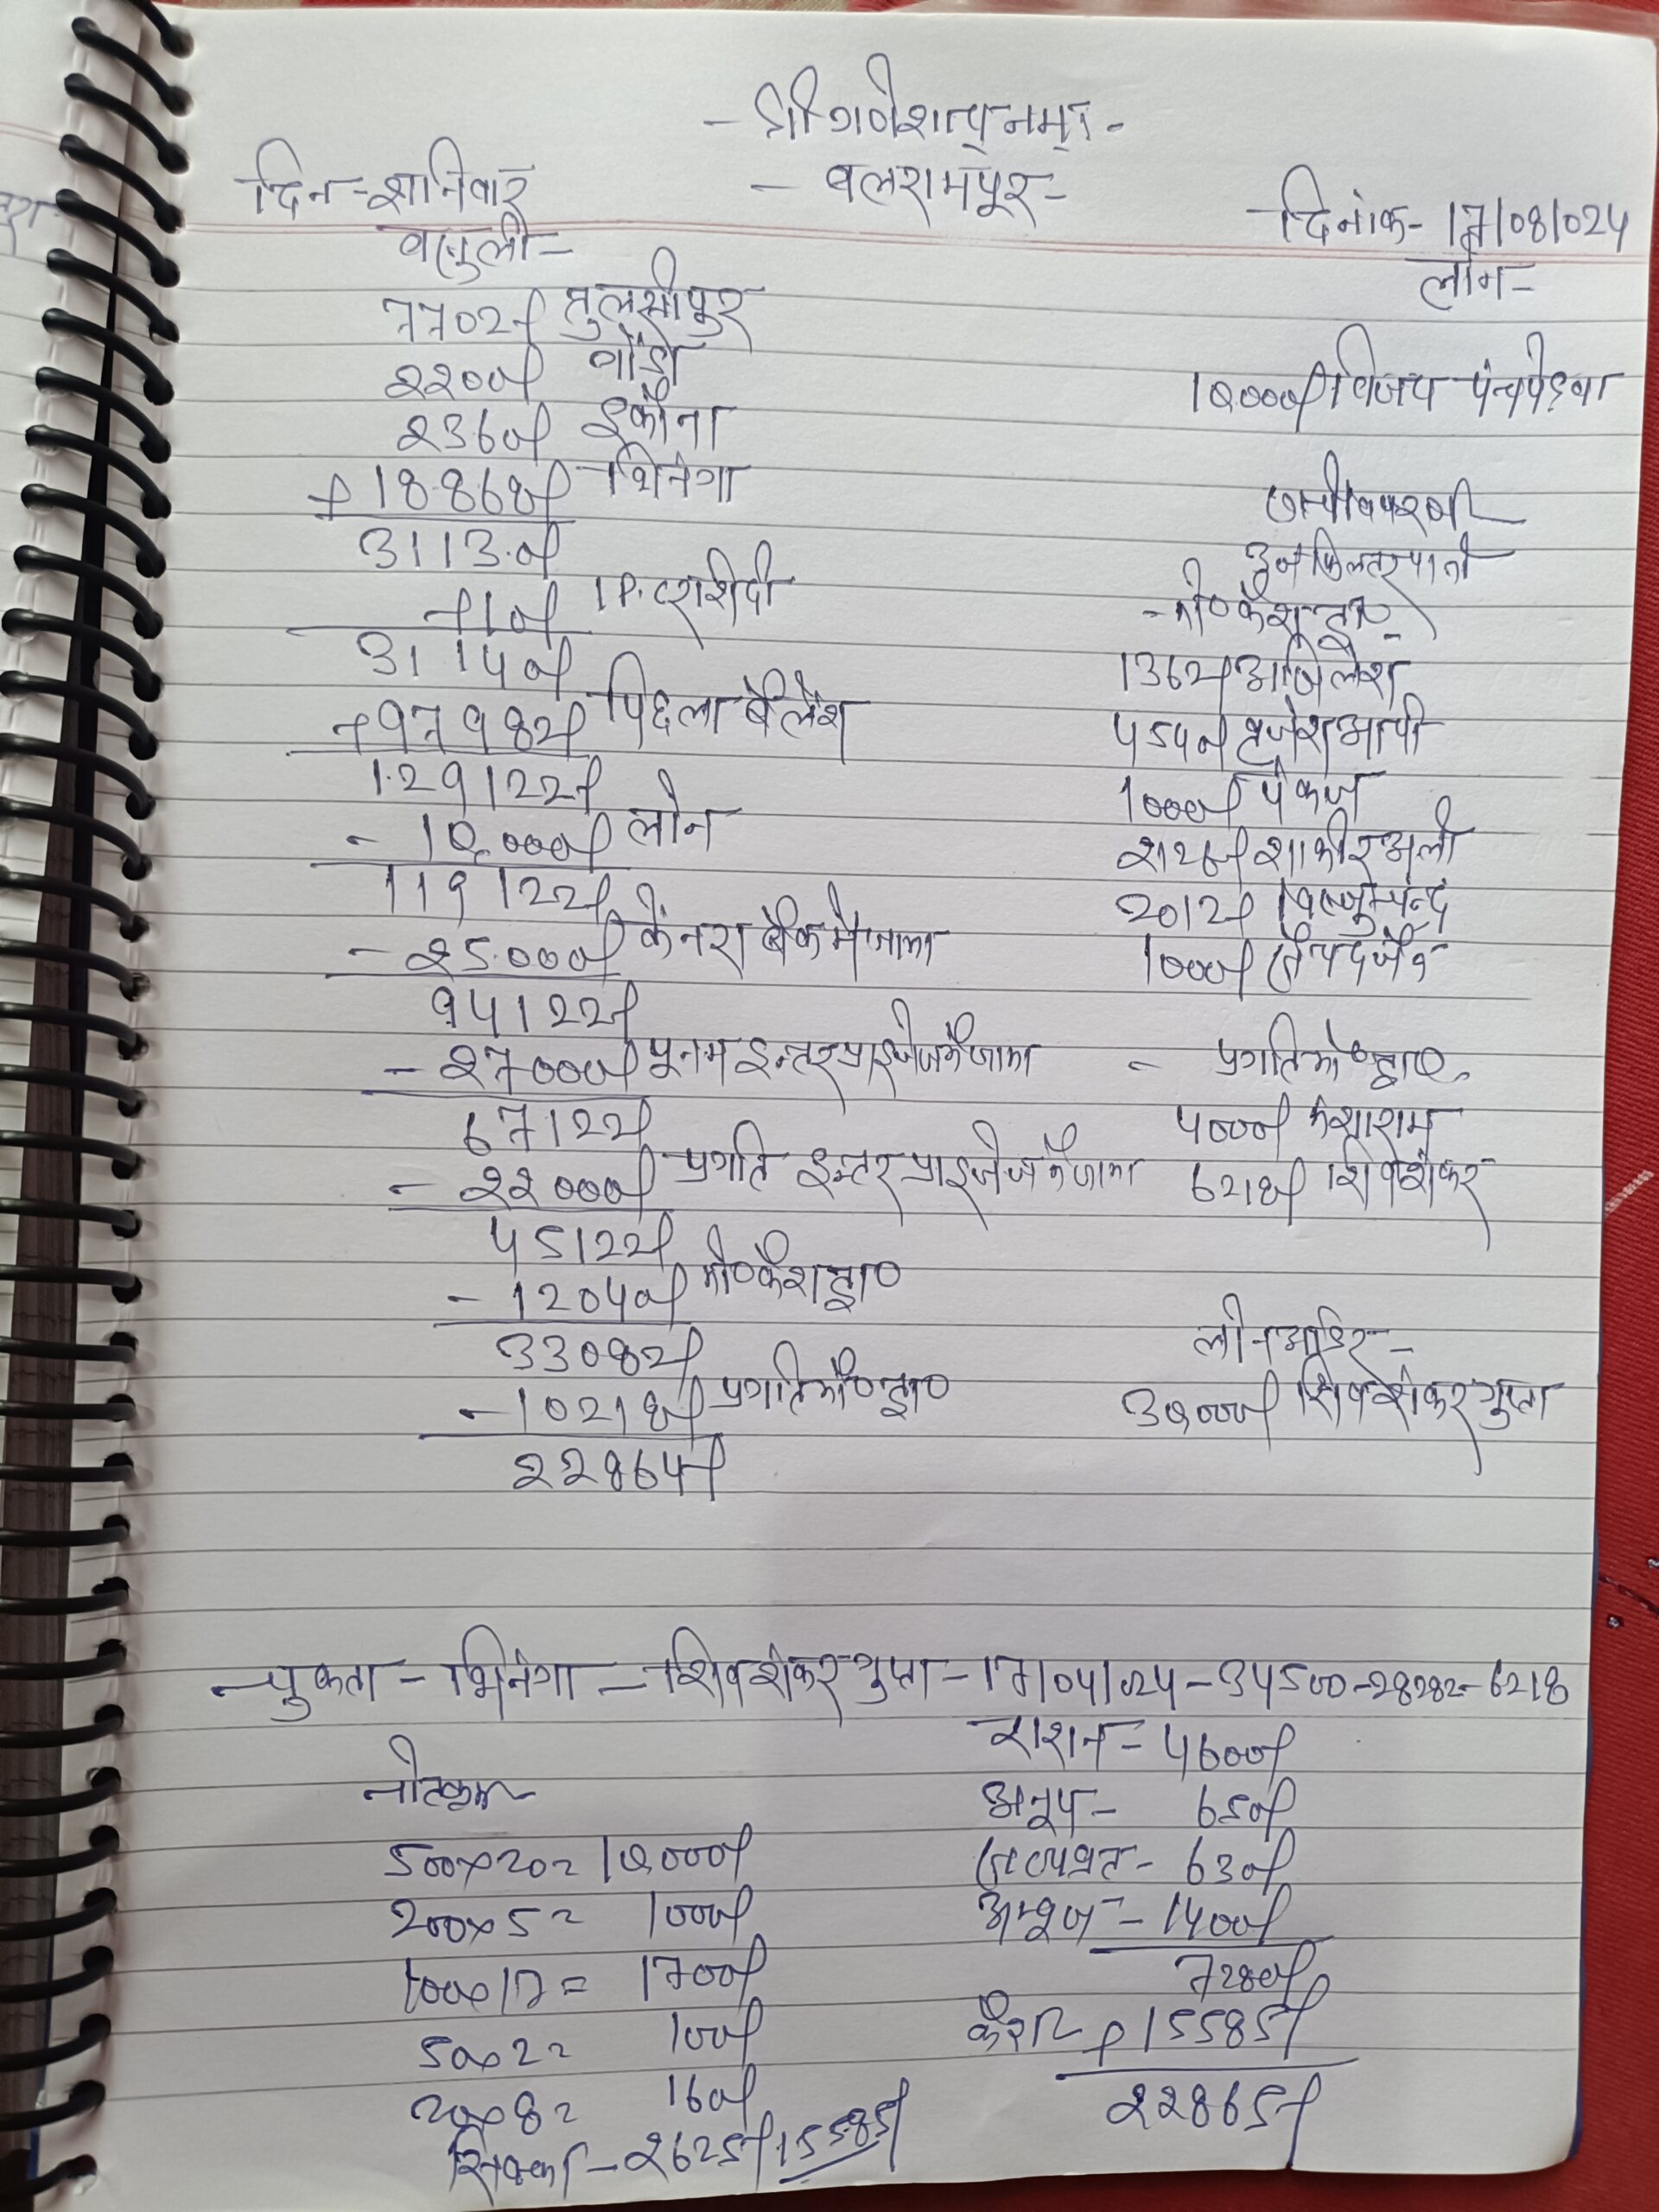 - श्री गणेशाय् नमः -
- बलरामपूर -
दिन - शनिवार
दिनांक - 17/08/024
वसुली -
लोन -
7702/ तुलसीपुर
2200/ गोंडा
10,000/ विजय पंचपेड़वा
2360/ इकौना
+ 18868/ भिनगा
31130/
+10/
31140/
+97982/ पिछला बैलेंश
129122/
- 10,000/ लोन
119122/
- 25000/ केनरा बैंक मे जमा
94122/
- 27000/ पूनम इन्टरप्राइजेज मे जमा
67122/
- 22000/ प्रगति इन्टरप्राइजेज मे जमा
45122/
- 12040/ मो० कैश द्वा०
33082/
- 10218/ प्रगति मो० द्वा०
22864/
- मो० कैश द्वा० -
1362/ अखिलेश
4540/ ब्रजेश
1000/ पंकज
2126/ शाकीर अली
2012/
1000/
- प्रगति मो० द्वा०
4000/ मंशाराम
6218/ शिवशंकर
लोन आडर -
30,000/ शिवशंकर गुप्ता
चुकता - भिनगा - शिवशंकर गुप्ता - 17/04/024 - 34500 - 28282 - 6218
राशन - 4600/
अनूप - 650/
सत्यव्रत - 630/
- 1400/
7280/
कैश + 15585/
22865/
500×20= 10,000/
200×5= 1000/
100×17= 1700/
50×2= 100/
20×8= 160/
सिक्का - 2625/ 15585/